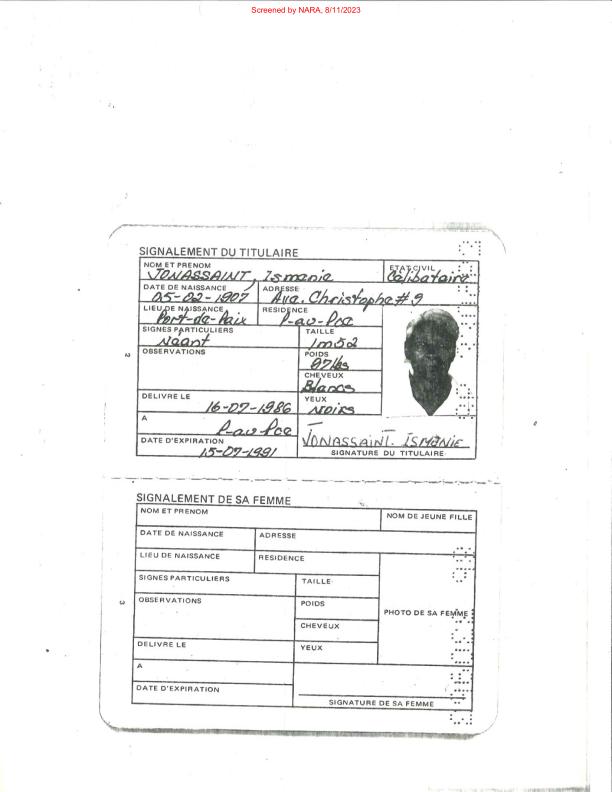 Screened by NARA, 8/11/2023
SIGNALEMENT DU TITULAIRE
NOM ET PRENOM
JONASSAINT, Ismanie
ETAT CIVIL
Célibataire
DATE DE NAISSANCE
05-02-1907
ADRESSE
Ave. Christophe # 9
LIEU DE NAISSANCE
Port-de-Paix
RESIDENCE
P-au-Pce
SIGNES PARTICULIERS
Néant
TAILLE
1m52
OBSERVATIONS
POIDS
97 lbs
CHEVEUX
Blancs
DELIVRE LE
16-07-1986
YEUX
Noirs
A
P-au-Pce
DATE D'EXPIRATION
15-07-1991
JONASSAINT. ISMANIE
SIGNATURE DU TITULAIRE
2
SIGNALEMENT DE SA FEMME
NOM ET PRENOM
NOM DE JEUNE FILLE
DATE DE NAISSANCE
ADRESSE
LIEU DE NAISSANCE
RESIDENCE
SIGNES PARTICULIERS
TAILLE
OBSERVATIONS
POIDS
PHOTO DE SA FEMME
CHEVEUX
DELIVRE LE
YEUX
A
DATE D'EXPIRATION
SIGNATURE DE SA FEMME
3